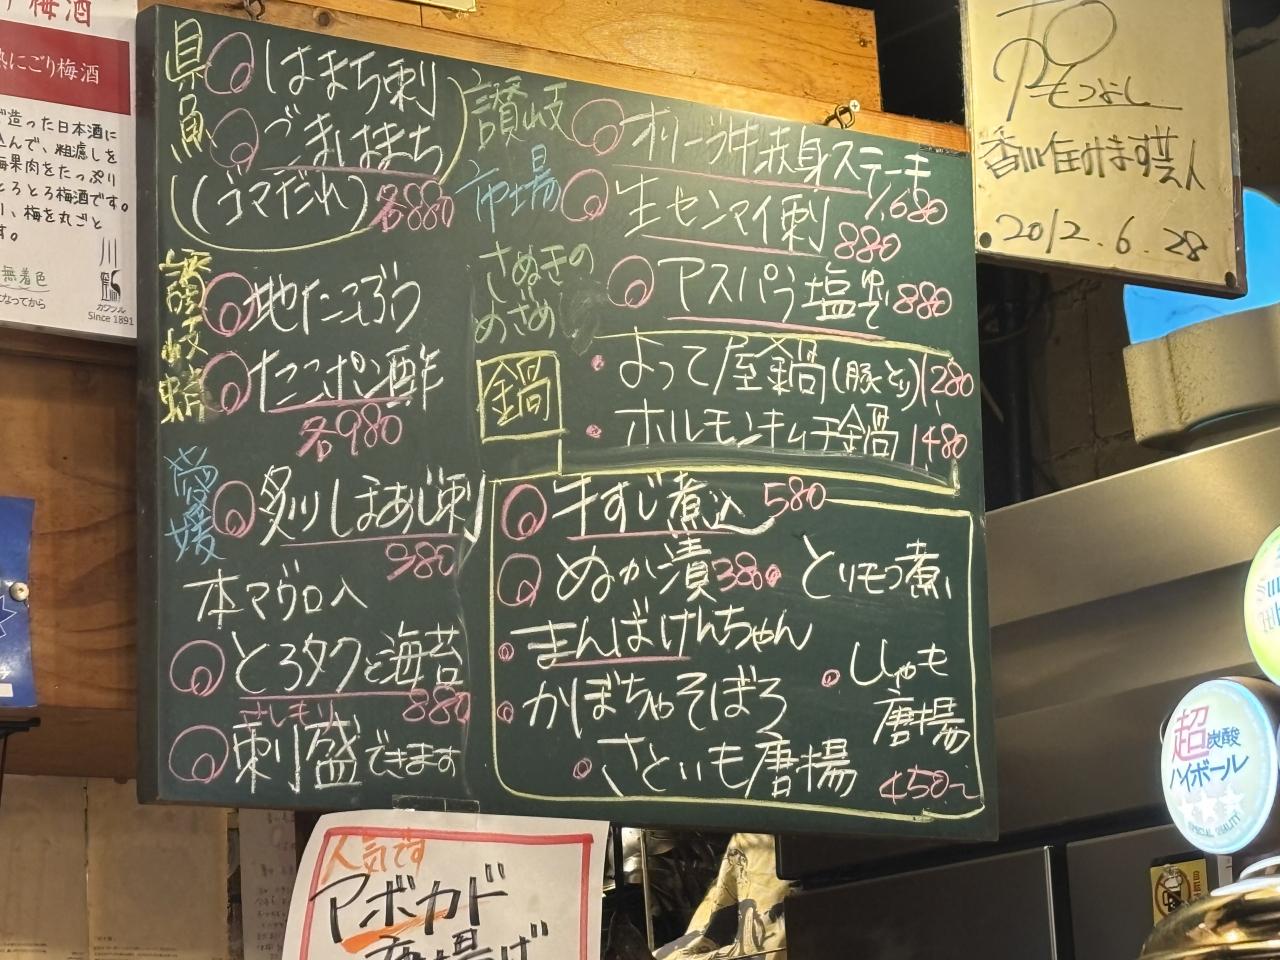 梅酒
熱にごり梅酒
造った日本酒に
込んで、粗濾しを
梅果肉をたっぷり
とろとろ梅酒です。
、梅を丸ごと
す。
無着色
になってから
カツヅル
Since 1891
県魚
はまち刺
ごまはまち
(ゴマだれ) 各880
讃岐蛸
地たこぶつ
たこポン酢
各980
愛媛
炙りしほあじ刺
980
本マグロ入
とろタクと海苔
880
刺盛できます
讃岐市場
オリーブ牛赤身ステーキ
1,680
生センマイ刺
880
さぬきのめざめ
アスパラ塩焼 880
鍋
・よって屋鍋(豚とり) 1,280
・ホルモンキムチ鍋 1,480
牛すじ煮込 580
ぬか漬 380
とりもつ煮
まんばけんちゃん
かぼちゃそぼろ
しゃも唐揚
さといも唐揚
450〜
もつよし
香川住みます芸人
2012.6.28
超炭酸
ハイボール
SPECIAL QUALITY
人気です
アボカド
唐揚げ